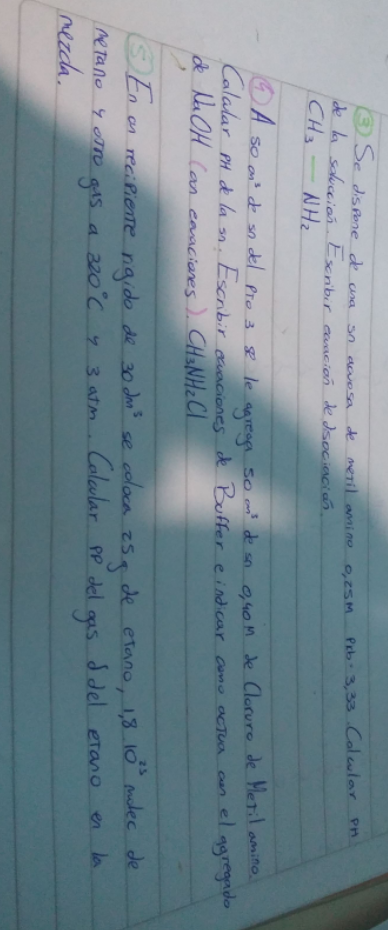 ③ Se dispone de una sn acuosa de metil amino 0,25M Pkb=3,33. Calcular PH
de la solución. Escribir ecuación de disociación
CH3 — NH2
④ A 50 cm³ de sn del Pto 3 se le agrega 50 cm³ de sn 0,40M de Cloruro de Metil amino.
Calcular PH de la sn. Escribir ecuaciones de Buffer e indicar como actua con el agregado
de NaOH (con ecuaciones). CH3NH2Cl
⑤ En un recipiente rigido de 30 dm³ se coloca 25g de etano, 1,8 10²³ molec de
metano y otro gas a 320°C y 3 atm. Calcular PP del gas y del etano en la
mezcla.